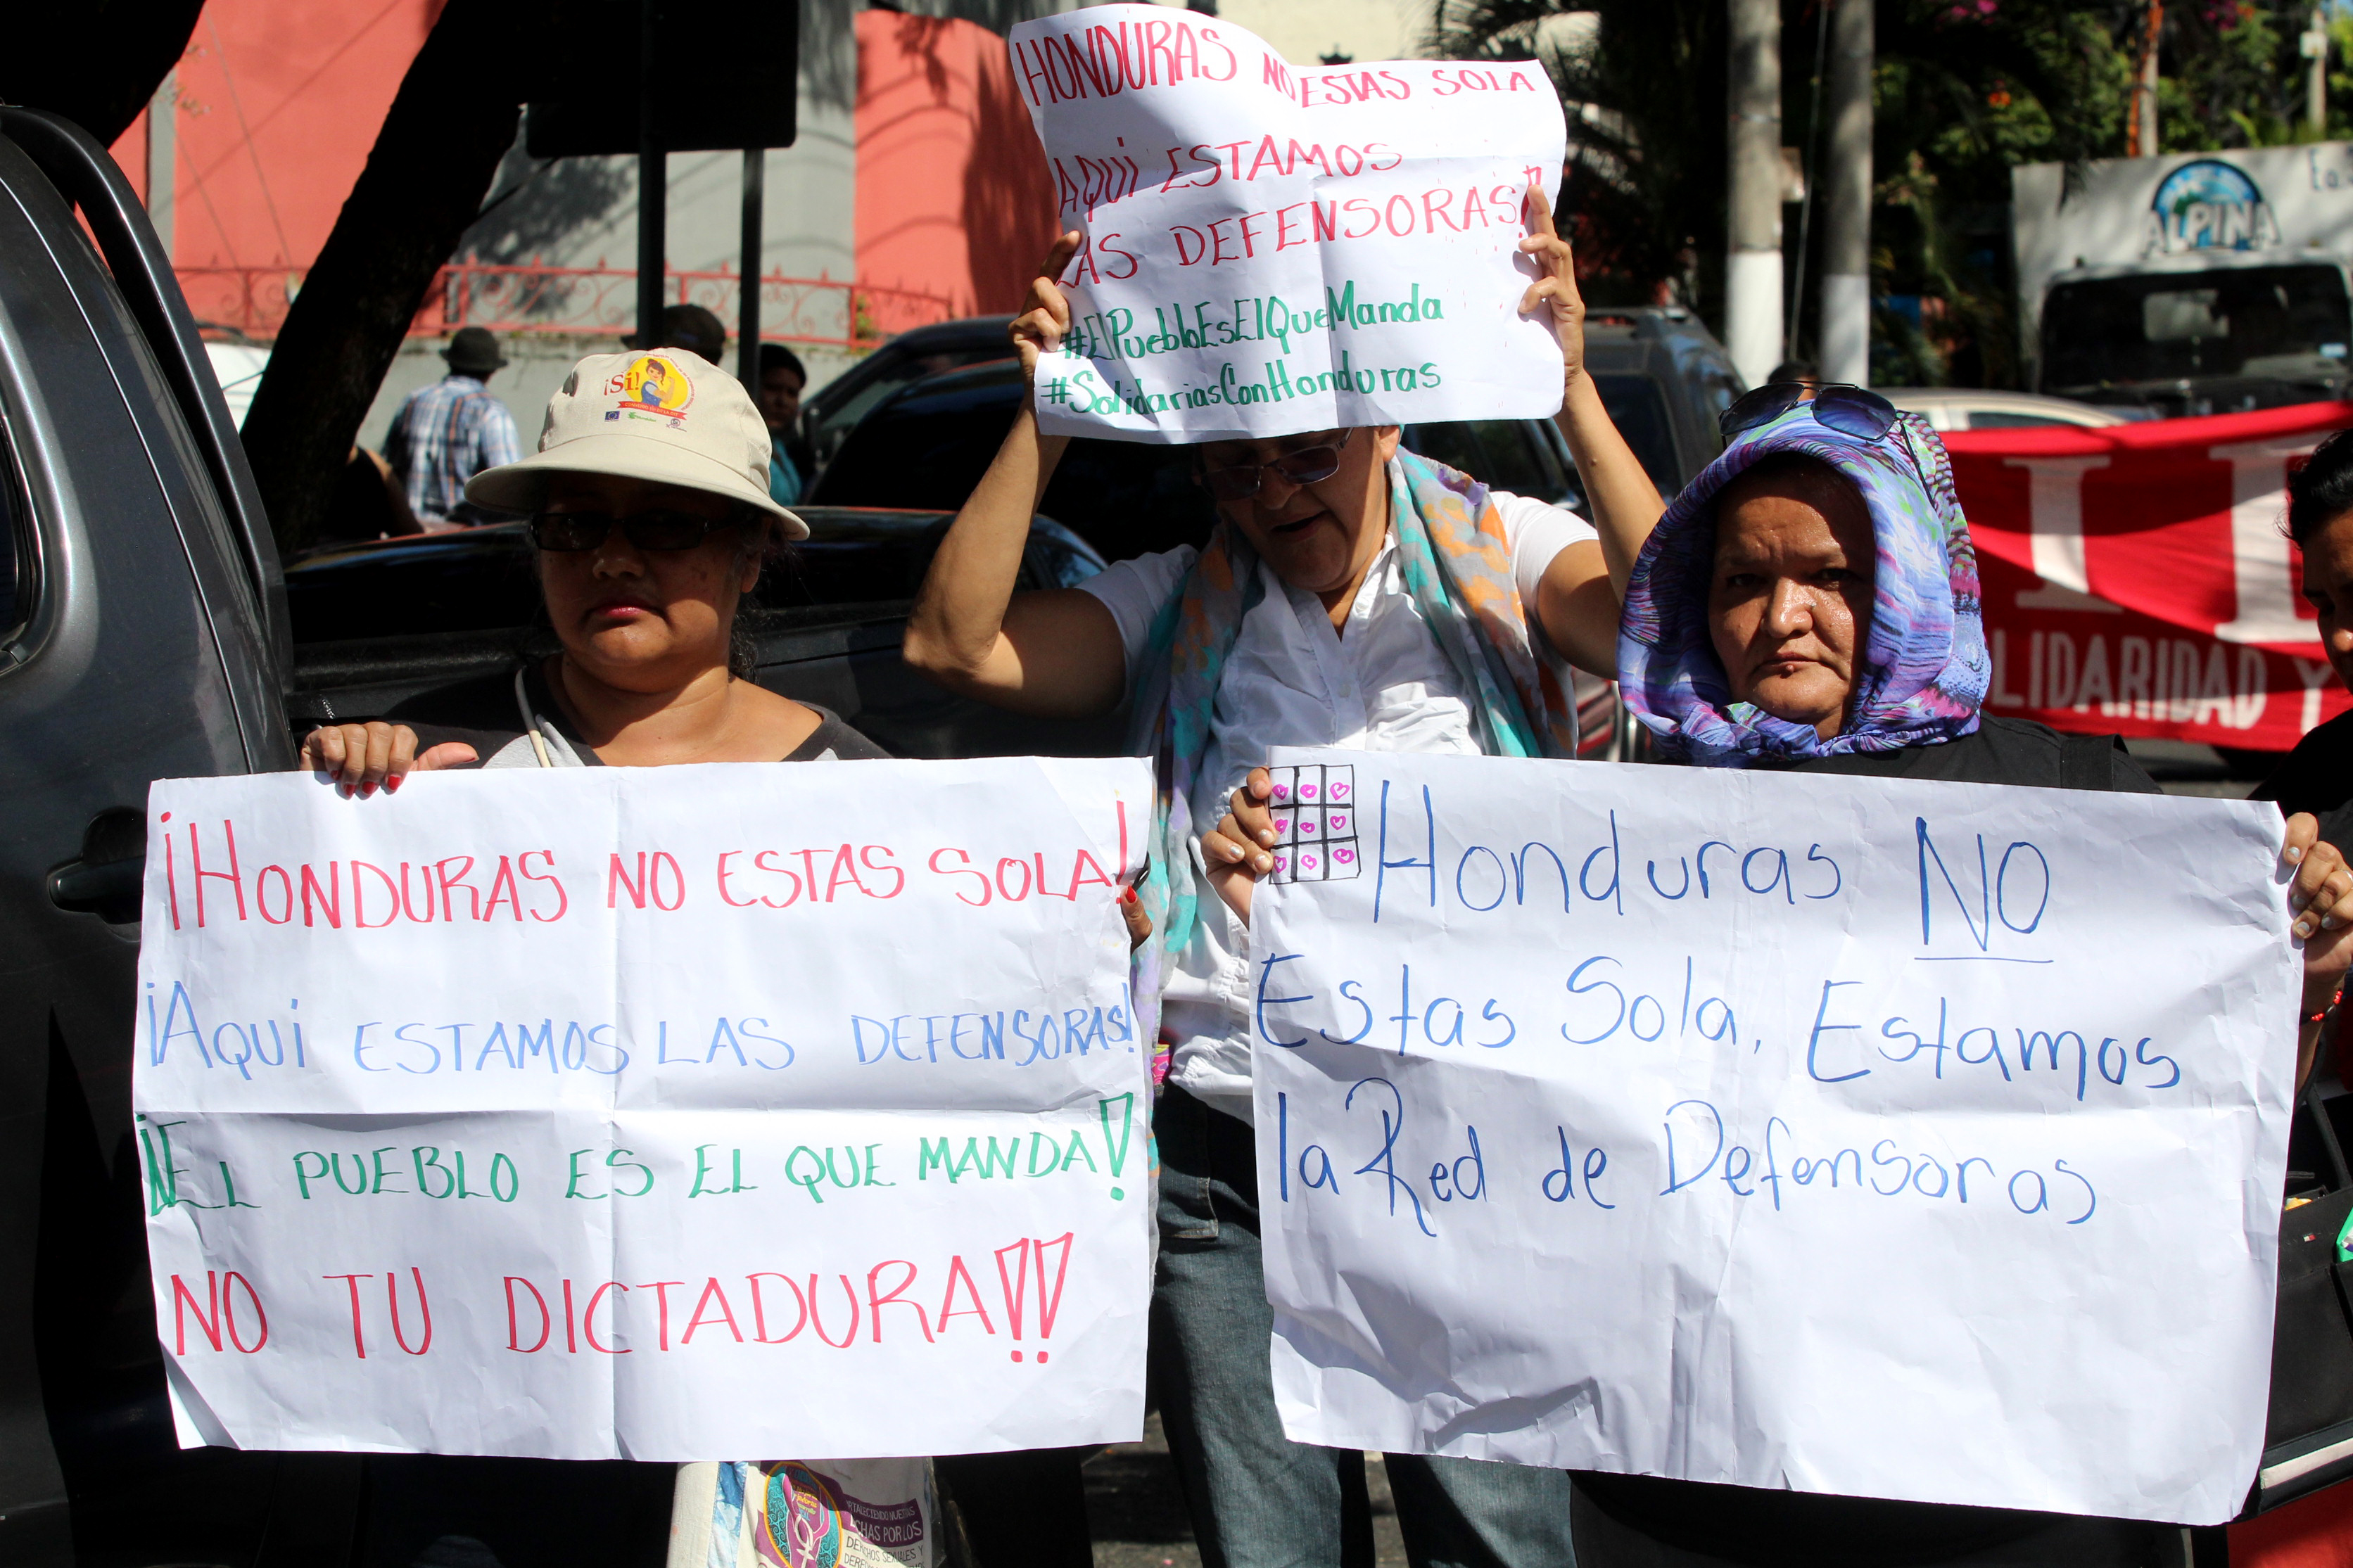 HONDURAS NO ESTAS SOLA
AQUI ESTAMOS
LAS DEFENSORAS!!
#ElPuebloEsElQueManda
#SolidariasConHonduras
ALPINA
¡Si!
LIDARIDAD Y
¡HONDURAS NO ESTAS SOLA!
¡AQUI ESTAMOS LAS DEFENSORAS!
¡EL PUEBLO ES EL QUE MANDA!
NO TU DICTADURA!!
Honduras NO
Estas Sola, Estamos
la Red de Defensoras
RTALECIENDO NUESTRAS
CHAS POR LOS
DERECHOS SEXUALES Y